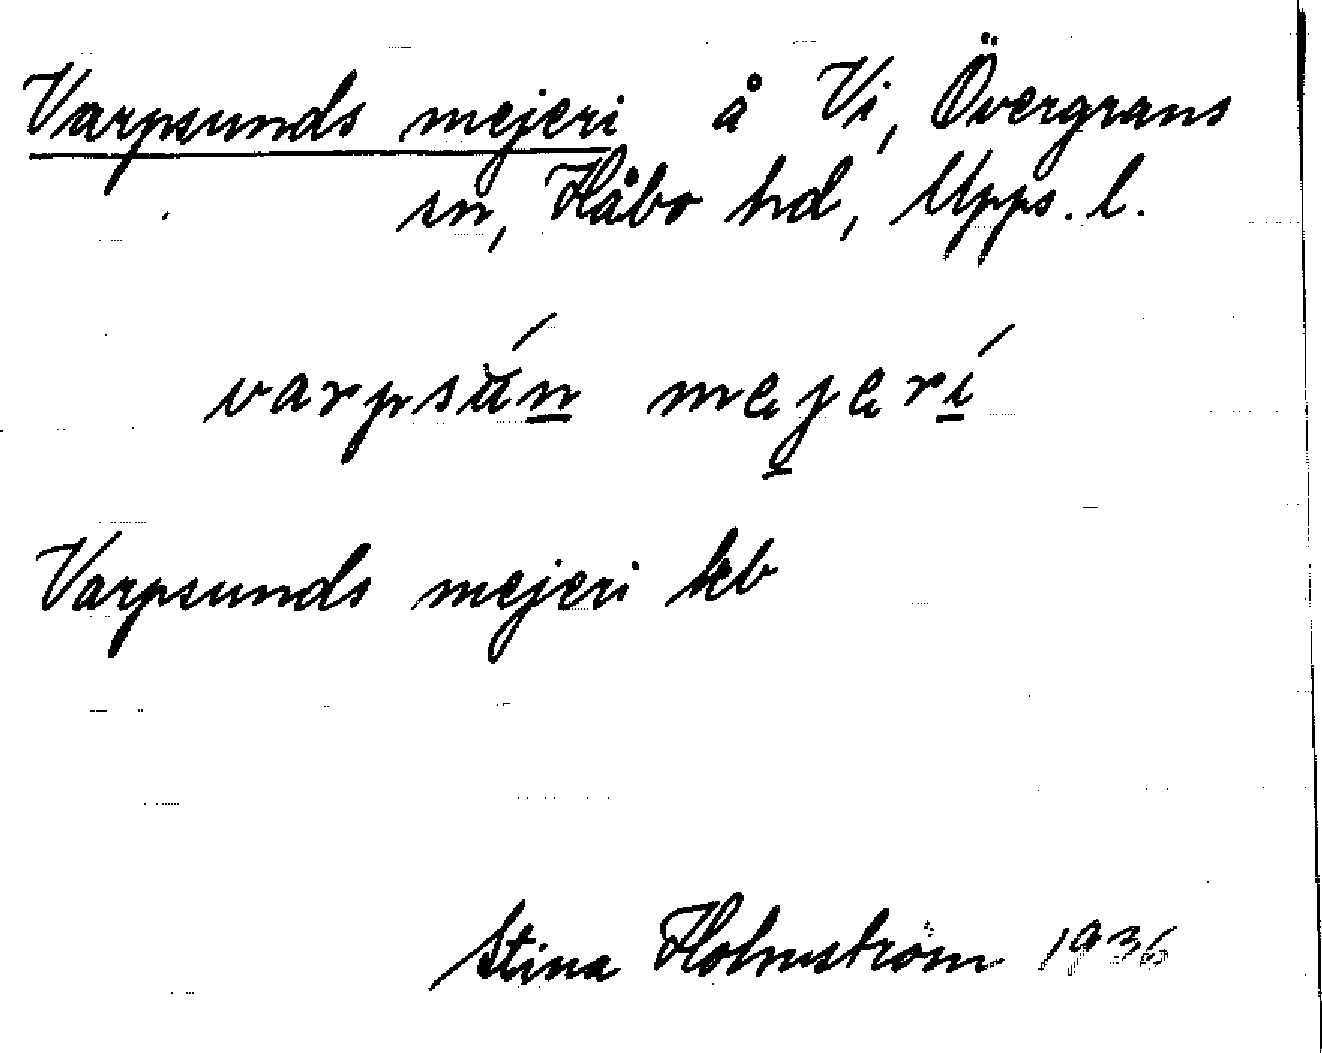 Varpsunds mejeri å Vi, Övergrans
sn, Håbo hd, Upps. l.
varpsún mejerí
Varpsunds mejeri kb
Stina Holmström 1936